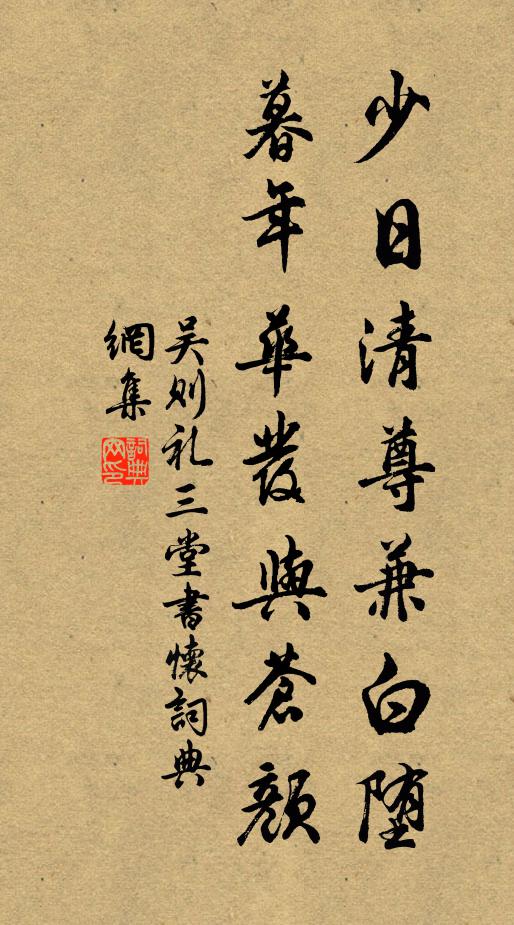 少日清尊兼白堕
暮年華發與蒼顏
吴则礼三堂書懷詞典
網集
詞典
网印